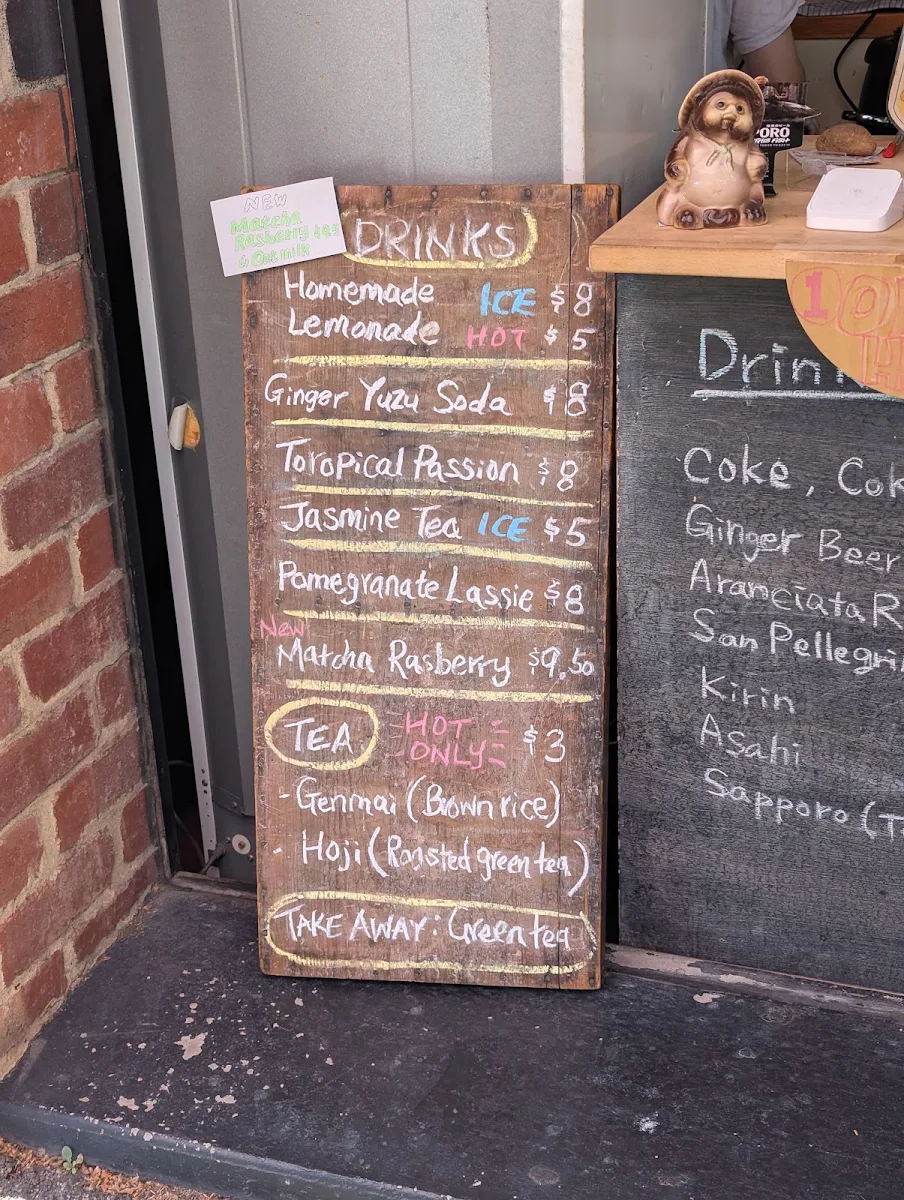 NEW
Matcha
Rasberry
Oat milk
DRINKS
Homemade ICE $8
Lemonade HOT $5
Ginger Yuzu Soda $8
Toropical Passion $8
Jasmine Tea ICE $5
Pomegranate Lassie $8
New
Matcha Rasberry $9.50
TEA HOT ONLY $3
- Genmai (Brown rice)
- Hoji (Roasted green tea)
TAKE AWAY: Green tea
PORO
10
Drin
Coke, Cok
Ginger Beer
Aranciata R
San Pellegri
Kirin
Asahi
Sapporo (T